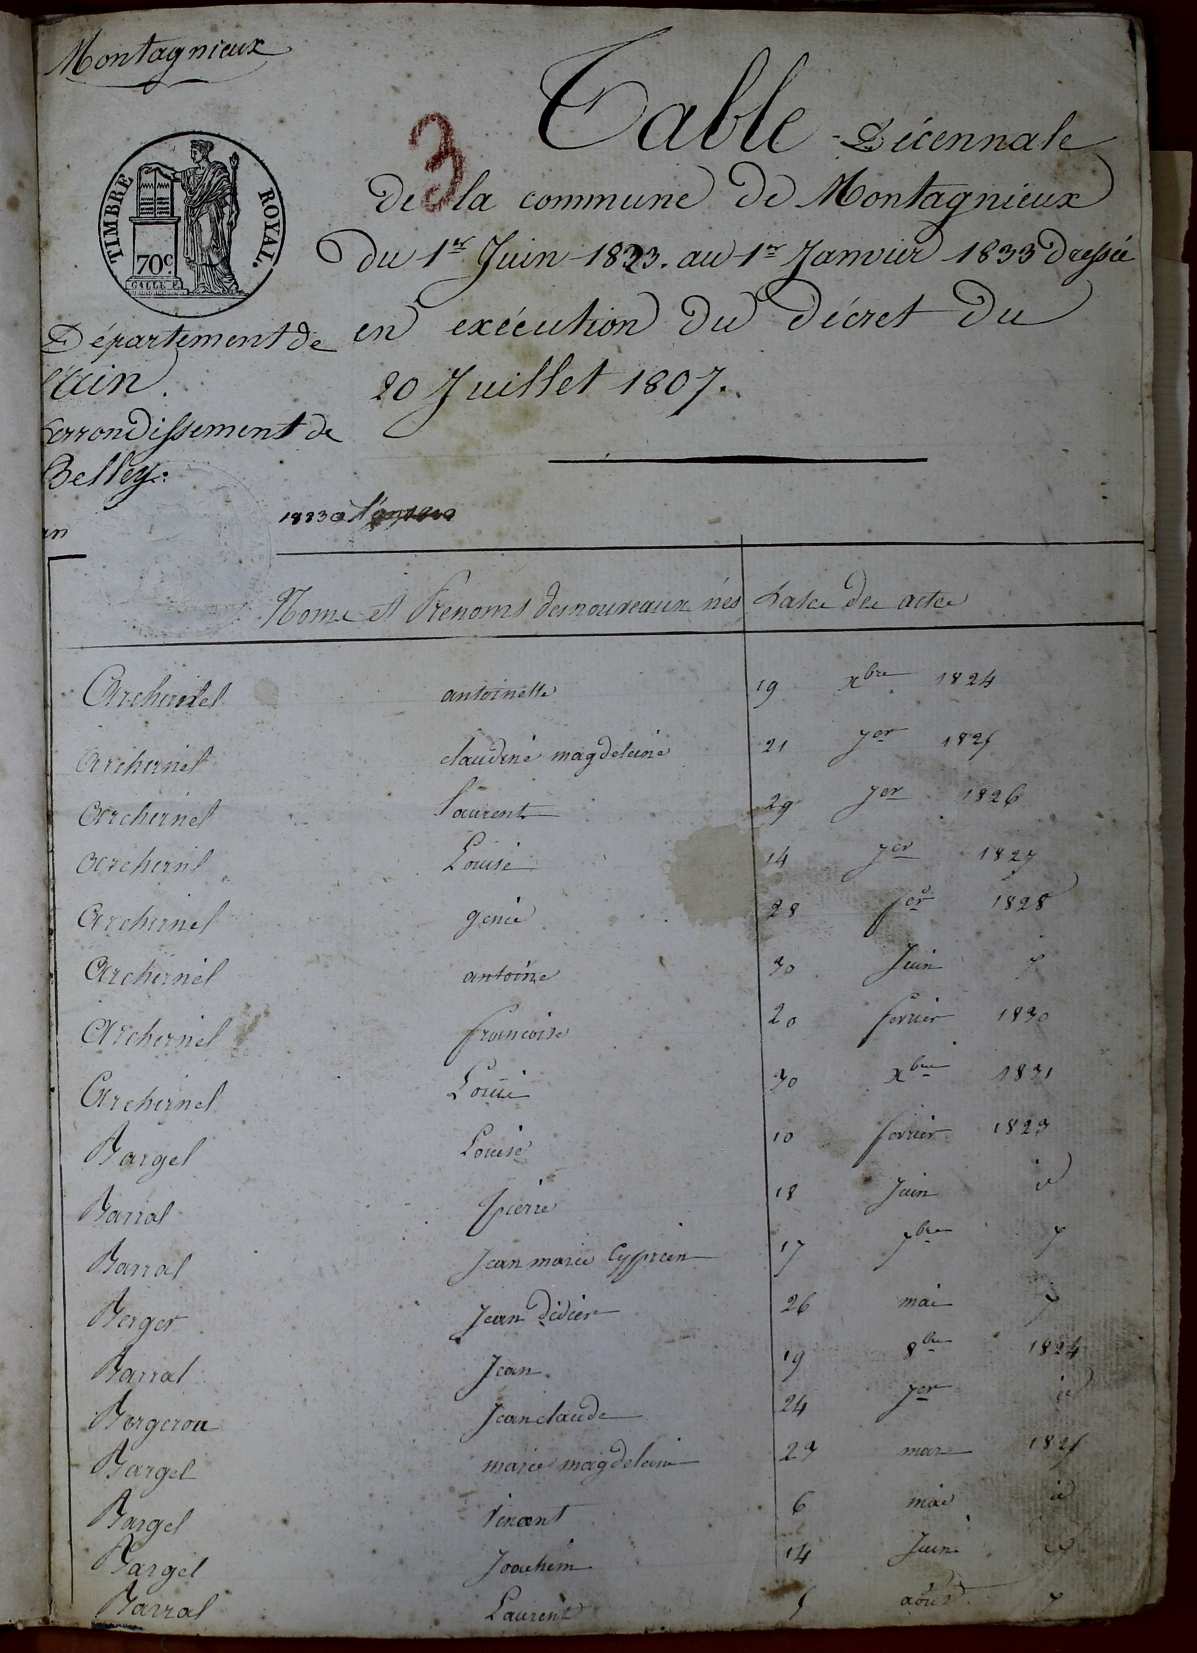 Montagnieux
TIMBRE ROYAL.
70c
3
Table Décennale
de la commune de Montagnieux
du 1er Juin 1823. au 1er Janvier 1833 dressée
en exécution du décret du
20 Juillet 1807.
Département de
l'ain.
arrondissement de
Belley.
an
1823 a
Noms et Prenoms des nouveaux nés Datte des actes
Archerriel antoinette 19 xbre 1824
Archerriel claudine magdeleine 21 jer 1825
Archerriel laurent 29 jer 1826
Archerriel Louise 14 jer 1827
Archerriel genie 28 1828
Archerriel antoine 30 Juin
Archerriel francoise 20 fevrier 1830
Archerriel Louis 30 xbre 1831
Bargel Louise 10 fevrier 1823
Barral pierre 18 Juin id
Barral Jean marie Cyprien 17
Berger Jean Didier 26 mai
Barral Jean 19 8bre 1824
Bergeron Jean claude 24 jer id
Bargel marie magdeleine 27 mars 1825
Bargel Vincent 6 mai id
Bargel Joachim 14 Juin id
Barral Laurent 5 août